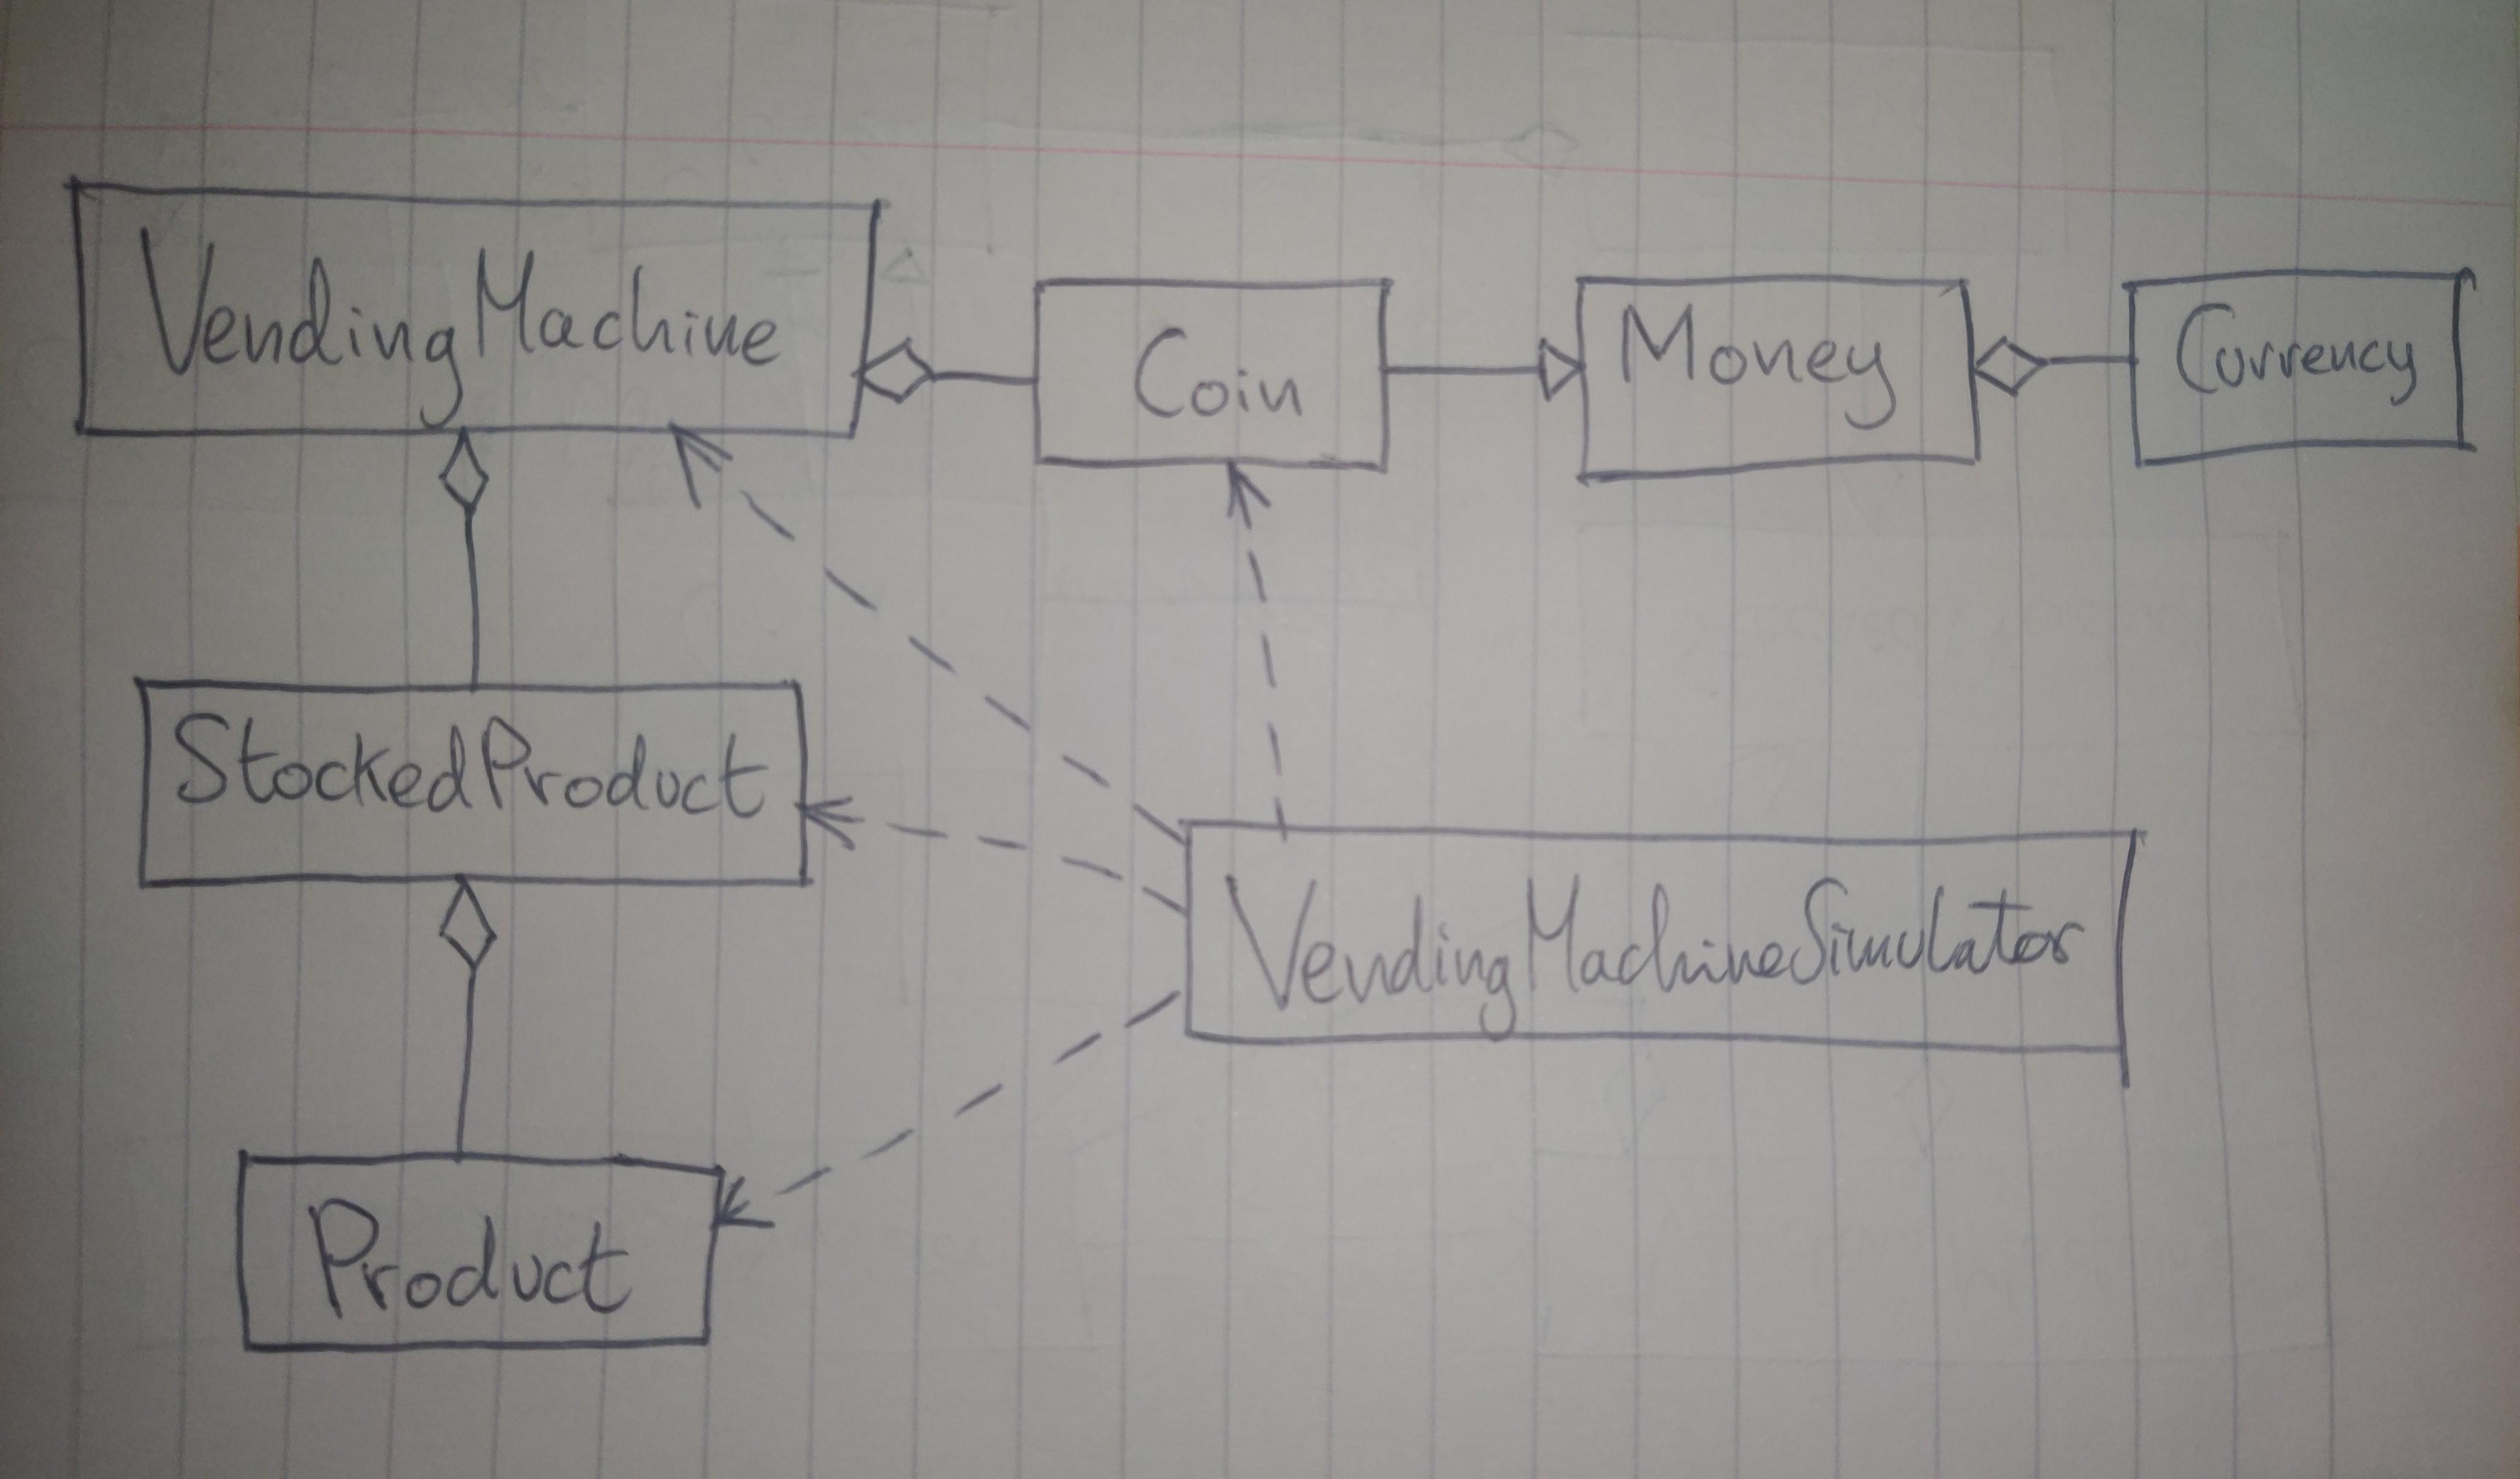 VendingMachine
Coin
Money
Currency
StockedProduct
VendingMachineSimulator
Product